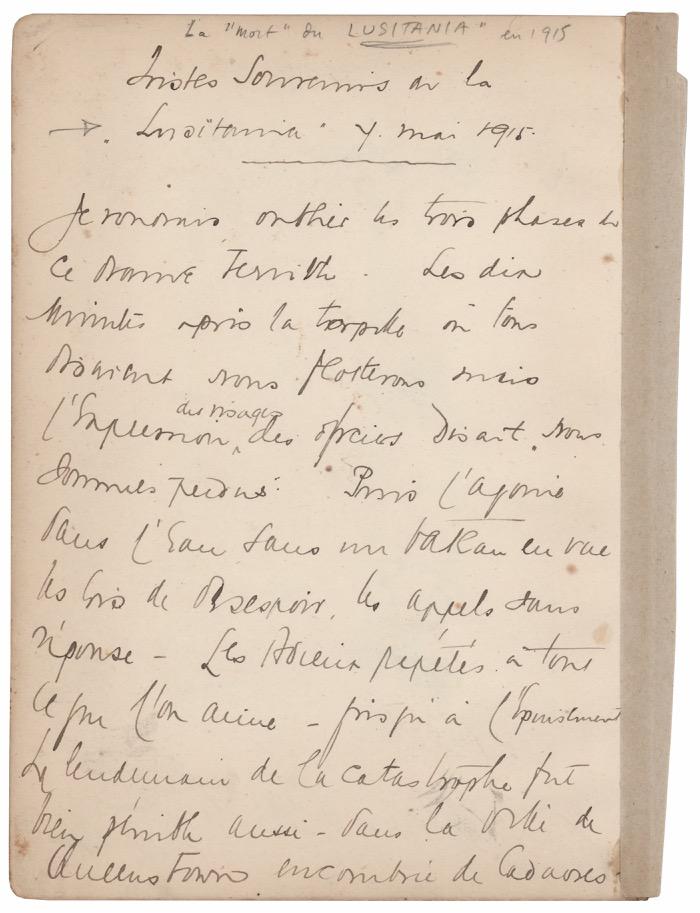 La "mort" du LUSITANIA" en 1915
Tristes Souvenirs de la
"Lusitania" 7. mai 1915.
Je voudrais oublier les trois phases de
ce drame terrible. Les dix
minutes après la torpille où tous
disaient nous flotterons mais
des visages
l'Expression des officiers disait "nous
sommes perdus". Puis l'agonie
dans l'Eau sans un bateau en vue
les cris de désespoir, les appels sans
réponse - Les Adieux répétés à tout
ce que l'on aime - jusqu'à l'Épuisement
Le lendemain de la catastrophe fut
bien pénible aussi - dans la ville de
Queenstown encombrée de Cadavres.